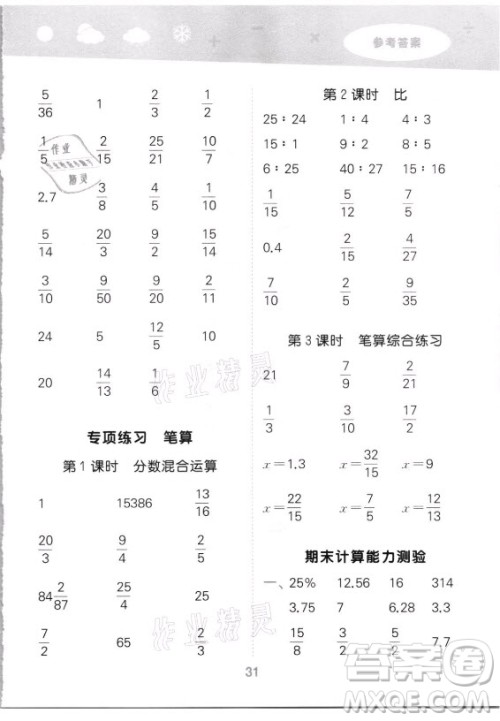 参考答案
5/36 1 2/3 1/2
1/5 2/15 25/21 10/7
2.7 3/8 4/5 2/15
5/14 20/3 2/9 5/14
3/10 50/9 9/10 2/11
24 5 12/5 10
20 14/13 1/6
专项练习 笔算
第1课时 分数混合运算
1 15386 13/16
20/3 9/4 2/5
84 2/87 25/4 25
7/2 65 2/3
第2课时 比
25∶24 1∶4 4∶3
15∶1 9∶2 8∶5
6∶25 40∶27 15∶16
1/15 5/12 7/5
0.4 2/15 4/27
7/10 2/5 9/35
第3课时 笔算综合练习
21 7/9 2/21
1/3 9/7 1/15
x=1.3 x=32/15 x=9
x=22/15 x=7/5 x=12/5
期末计算能力测验
一、25% 12.56 16 314
3.75 7 6.28 3.3
15/8 3/2 5/2 7.7
31
作业精灵
作业精灵
答案圈
MXQE.COM